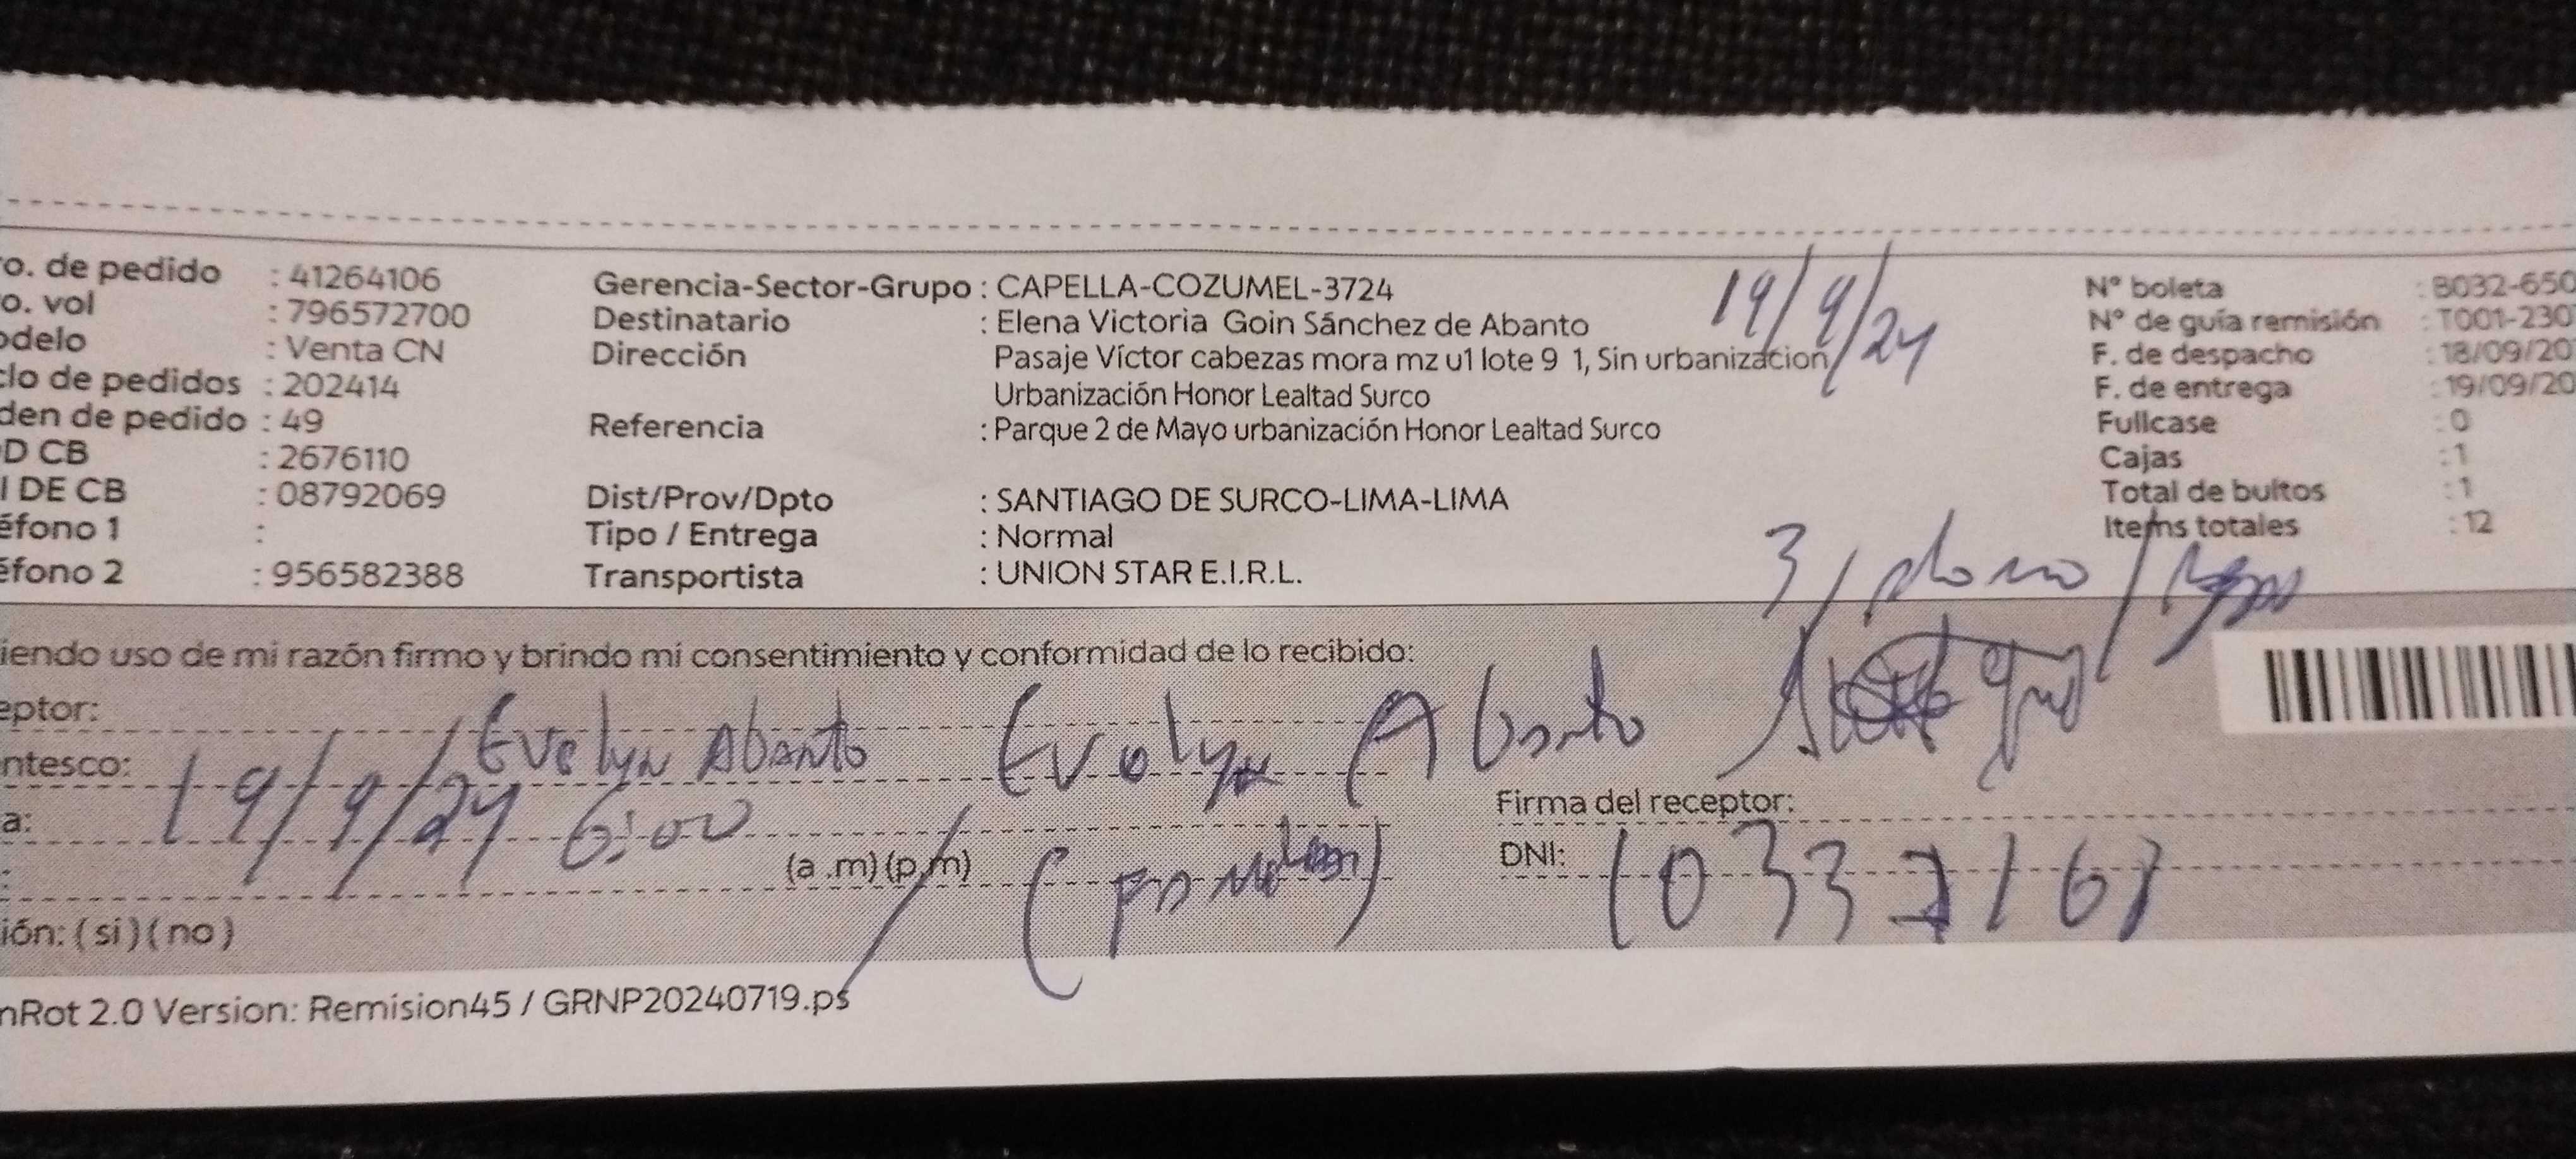 o. de pedido : 41264106
o. vol : 796572700
odelo : Venta CN
clo de pedidos : 202414
den de pedido : 49
D CB : 2676110
I DE CB : 08792069
éfono 1 :
éfono 2 : 956582388
Gerencia-Sector-Grupo : CAPELLA-COZUMEL-3724
Destinatario : Elena Victoria Goin Sánchez de Abanto
Dirección Pasaje Víctor cabezas mora mz u1 lote 9 1, Sin urbanizacion
Urbanización Honor Lealtad Surco
Referencia : Parque 2 de Mayo urbanización Honor Lealtad Surco
Dist/Prov/Dpto : SANTIAGO DE SURCO-LIMA-LIMA
Tipo / Entrega : Normal
Transportista : UNION STAR E.I.R.L.
19/9/24
N° boleta : B032-650
N° de guía remisión : T001-230
F. de despacho : 18/09/20
F. de entrega : 19/09/20
Fullcase : 0
Cajas : 1
Total de bultos : 1
Items totales : 12
3/ plomo /
iendo uso de mi razón firmo y brindo mi consentimiento y conformidad de lo recibido:
eptor: Evelyn Abanto Evelyn Abanto
ntesco:
a: 19/9/24 6:00
: (a .m) (p.m)
Firma del receptor:
DNI:
ión: ( si ) ( no )
nRot 2.0 Version: Remision45 / GRNP20240719.ps